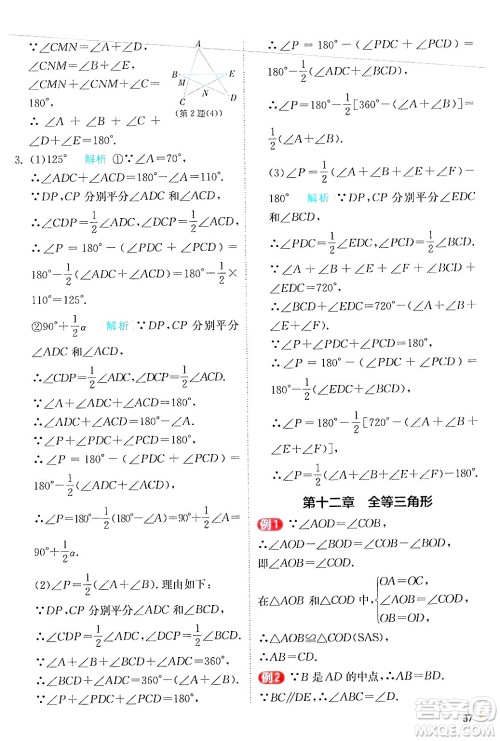 ∵∠CMN=∠A+∠D,
∠CNM=∠B+∠E,
∠C+∠CMN+∠CNM=
180°,
∴∠A+∠B+∠C+
∠D+∠E=180°.
A
B
E
M
N
C
D
(第2题(4))
3. (1)125° 解析 ①∵∠A=70°,
∴∠ADC+∠ACD=180°-∠A=110°.
∵DP,CP 分别平分∠ADC 和∠ACD,
∴∠PDC=1/2∠ADC,∠DCP=1/2∠ACD,
∴∠P=180°-(∠PDC+∠PCD)=
180°-1/2(∠ADC+∠ACD)=180°-1/2×
110°=125°.
②90°+1/2α 解析 ∵DP,CP 分别平分
∠ADC 和∠ACD,
∴∠CDP=1/2∠ADC,∠DCP=1/2∠ACD.
∵∠A+∠ADC+∠ACD=180°,
∴∠ADC+∠ACD=180°-∠A.
∵∠P+∠PDC+∠PCD=180°,
∴∠P=180°-(∠PDC+∠PCD)=
180°-1/2(∠ADC+∠ACD)=180°-
1/2(180°-∠A)=90°+1/2∠A=
90°+1/2α.
(2)∠P=1/2(∠A+∠B).理由如下:
∵DP,CP 分别平分∠ADC 和∠BCD,
∴∠CDP=1/2∠ADC,∠DCP=1/2∠BCD.
∵∠A+∠B+∠BCD+∠ADC=360°,
∴∠BCD+∠ADC=360°-(∠A+∠B).
∵∠P+∠PDC+∠PCD=180°,
∴∠P=180°-(∠PDC+∠PCD),
∴∠P=180°-1/2(∠ADC+∠BCD),
∴∠P=180°-1/2[360°-(∠A+∠B)],
∴∠P=1/2(∠A+∠B).
(3)∠P=1/2(∠A+∠B+∠E+∠F)-
180° 解析 ∵DP,CP 分别平分∠EDC 和
∠BCD,
∴∠PDC=1/2∠EDC,∠PCD=1/2∠BCD.
∵∠A+∠B+∠BCD+∠EDC+∠E+
∠F=720°,
∴∠BCD+∠EDC=720°-(∠A+∠B+
∠E+∠F).
∵∠P+∠PDC+∠PCD=180°,
∴∠P=180°-(∠PDC+∠PCD),
∴∠P=180°-1/2(∠EDC+∠BCD),
∴∠P=180°-1/2[720°-(∠A+∠B+
∠E+∠F)],
∴∠P=1/2(∠A+∠B+∠E+∠F)-180°.
第十二章 全等三角形
例1 ∵∠AOD=∠COB,
∴∠AOD-∠BOD=∠COB-∠BOD,
即∠AOB=∠COD.
在△AOB 和△COD 中,{OA=OC,
∠AOB=∠COD,
OB=OD,
∴△AOB≌△COD(SAS),
∴AB=CD.
例2 ∵B 是 AD 的中点,∴AB=BD.
∵BC∥DE,∴∠ABC=∠D.
37
答案圈